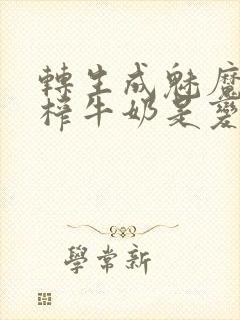 轉生成魅魔
榨牛奶是變
學常新